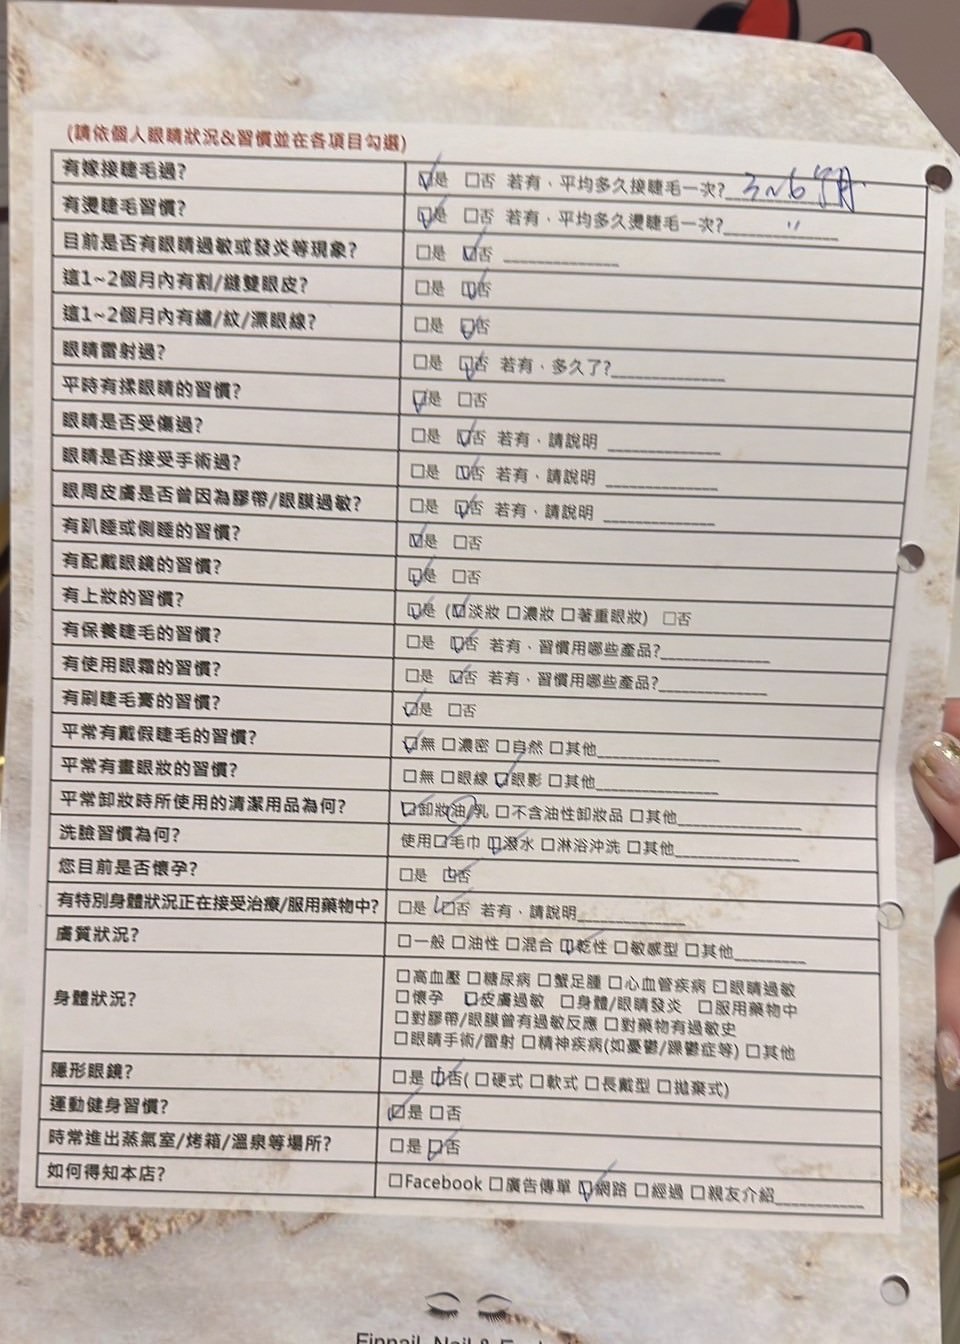 (請依個人眼睛狀況&習慣並在各項目勾選)
有嫁接睫毛過? ☑是 □否 若有、平均多久接睫毛一次? 3~6個月
有燙睫毛習慣? ☑是 □否 若有、平均多久燙睫毛一次? "
目前是否有眼睛過敏或發炎等現象? □是 ☑否
這1~2個月內有割/縫雙眼皮? □是 ☑否
這1~2個月內有繡/紋/漂眼線? □是 ☑否
眼睛雷射過? □是 ☑否 若有、多久了?
平時有揉眼睛的習慣? ☑是 □否
眼睛是否受傷過? □是 ☑否 若有、請說明
眼睛是否接受手術過? □是 ☑否 若有、請說明
眼周皮膚是否曾因為膠帶/眼膜過敏? □是 ☑否 若有、請說明
有趴睡或側睡的習慣? ☑是 □否
有配戴眼鏡的習慣? ☑是 □否
有上妝的習慣? ☑是 (☑淡妝 □濃妝 □著重眼妝) □否
有保養睫毛的習慣? □是 ☑否 若有、習慣用哪些產品?
有使用眼霜的習慣? □是 ☑否 若有、習慣用哪些產品?
有刷睫毛膏的習慣? ☑是 □否
平常有戴假睫毛的習慣? ☑無 □濃密 □自然 □其他
平常有畫眼妝的習慣? □無 □眼線 ☑眼影 □其他
平常卸妝時所使用的清潔用品為何? ☑卸妝油/乳 □不含油性卸妝品 □其他
洗臉習慣為何? 使用□毛巾 ☑潑水 □淋浴沖洗 □其他
您目前是否懷孕? □是 ☑否
有特別身體狀況正在接受治療/服用藥物中? □是 ☑否 若有、請說明
膚質狀況? □一般 □油性 □混合 ☑乾性 □敏感型 □其他
身體狀況?
□高血壓 □糖尿病 □蟹足腫 □心血管疾病 □眼睛過敏
□懷孕 ☑皮膚過敏 □身體/眼睛發炎 □服用藥物中
□對膠帶/眼膜曾有過敏反應 □對藥物有過敏史
□眼睛手術/雷射 □精神疾病(如憂鬱/躁鬱症等) □其他
隱形眼鏡? □是 ☑否(□硬式 □軟式 □長戴型 □拋棄式)
運動健身習慣? ☑是 □否
時常進出蒸氣室/烤箱/溫泉等場所? □是 ☑否
如何得知本店? □Facebook □廣告傳單 ☑網路 □經過 □親友介紹